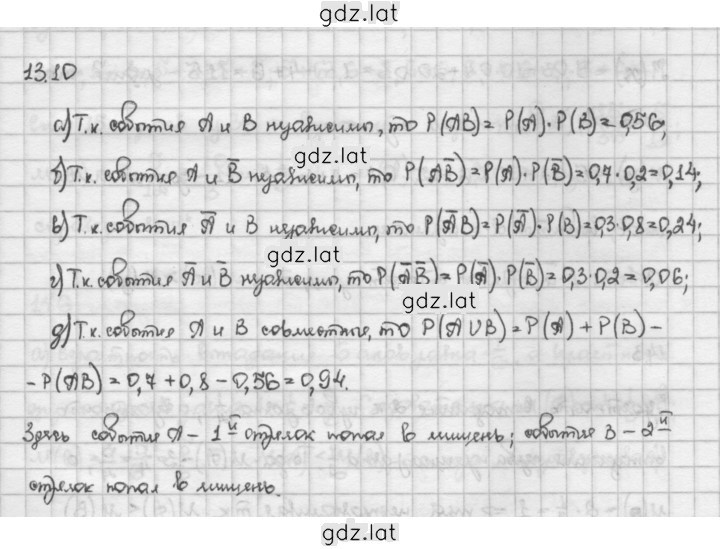 gdz.lat
13.10
а) Т.к. события A и B независимы, то P(AB) = P(A)·P(B) = 0,56;
gdz.lat
б) Т.к. события A и B̅ независимы, то P(AB̅) = P(A)·P(B̅) = 0,7·0,2 = 0,14;
gdz.lat
в) Т.к. события A̅ и B независимы, то P(A̅B) = P(A̅)·P(B) = 0,3·0,8 = 0,24;
г) Т.к. события A̅ и B̅ независимы, то P(A̅B̅) = P(A̅)·P(B̅) = 0,3·0,2 = 0,06;
gdz.lat gdz.lat
д) Т.к. события A и B совместные, то P(A∪B) = P(A) + P(B) -
- P(AB) = 0,7 + 0,8 - 0,56 = 0,94.
gdz.lat
Здесь событие A - 1й стрелок попал в мишень; событие B - 2й
стрелок попал в мишень.
gdz.lat
gdz.lat